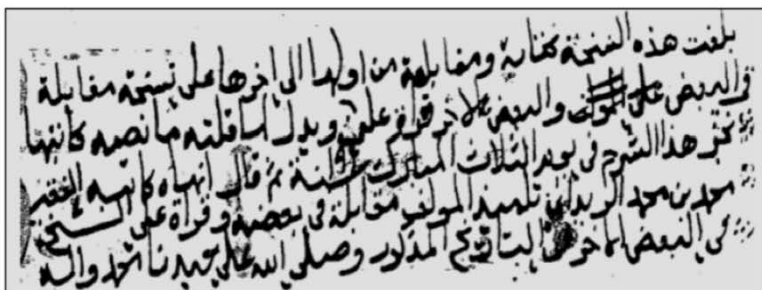 بلغت هذه النسخة كتابة ومقابلة من اولها الى اخرها على نسخة مقابلة
في البعض على المولف والبعض الاخر قراة عليه وبذيل ما قابلته ما نصه كاتبها
نجز هذا الشرح في يوم الثلاث المبارك سنة ثم قال انهاه كاتبه الفقير
محمد بن محمد تلميذ المولف مقابلة في بعضه وقراة على الشيخ
في البعض الاخر بالتاريخ المذكور وصلى الله على سيدنا محمد واله